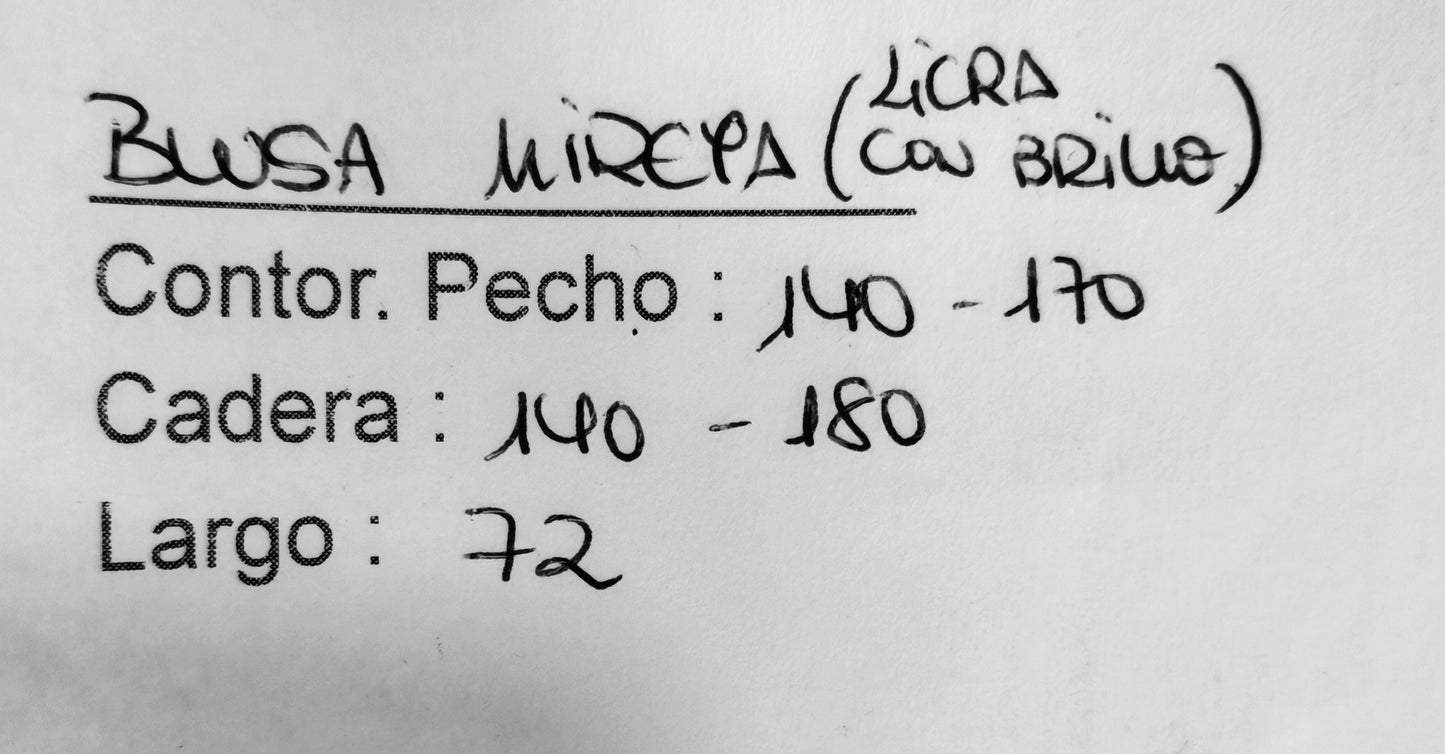 BLUSA MIREYA (LICRA CON BRILLO)
Contor. Pecho : 140 - 170
Cadera : 140 - 180
Largo : 72